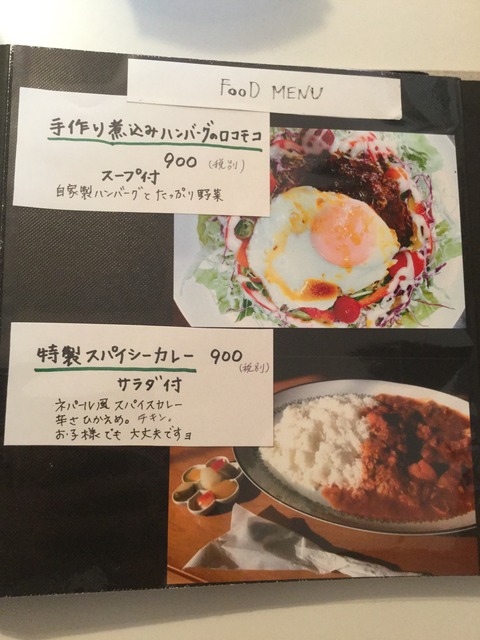 FooD MENU
手作り煮込みハンバーグのロコモコ
900 (税別)
スープ付
自家製ハンバーグと たっぷり野菜
特製スパイシーカレー 900
(税別)
サラダ付
ネパール風 スパイスカレー
辛さひかえめ。チキン。
お子様でも 大丈夫です